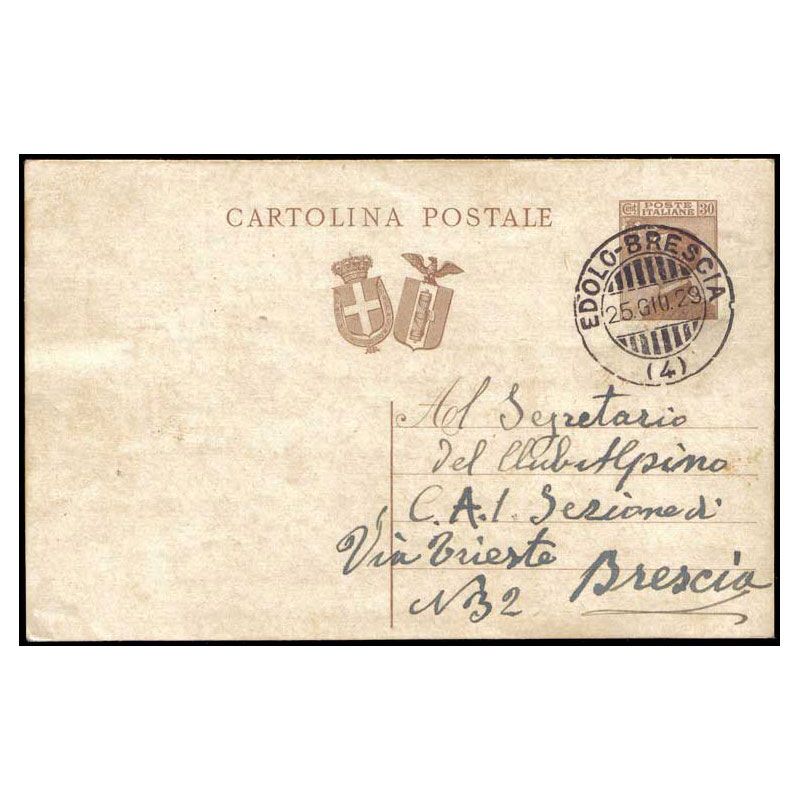 Cent POSTE ITALIANE 30
CARTOLINA POSTALE
EDOLO-BRESCIA
25.GIU.29
(4)
Al Segretario
del Club Alpino
C.A.I. Sezione di
Via Trieste
Brescia
N 32